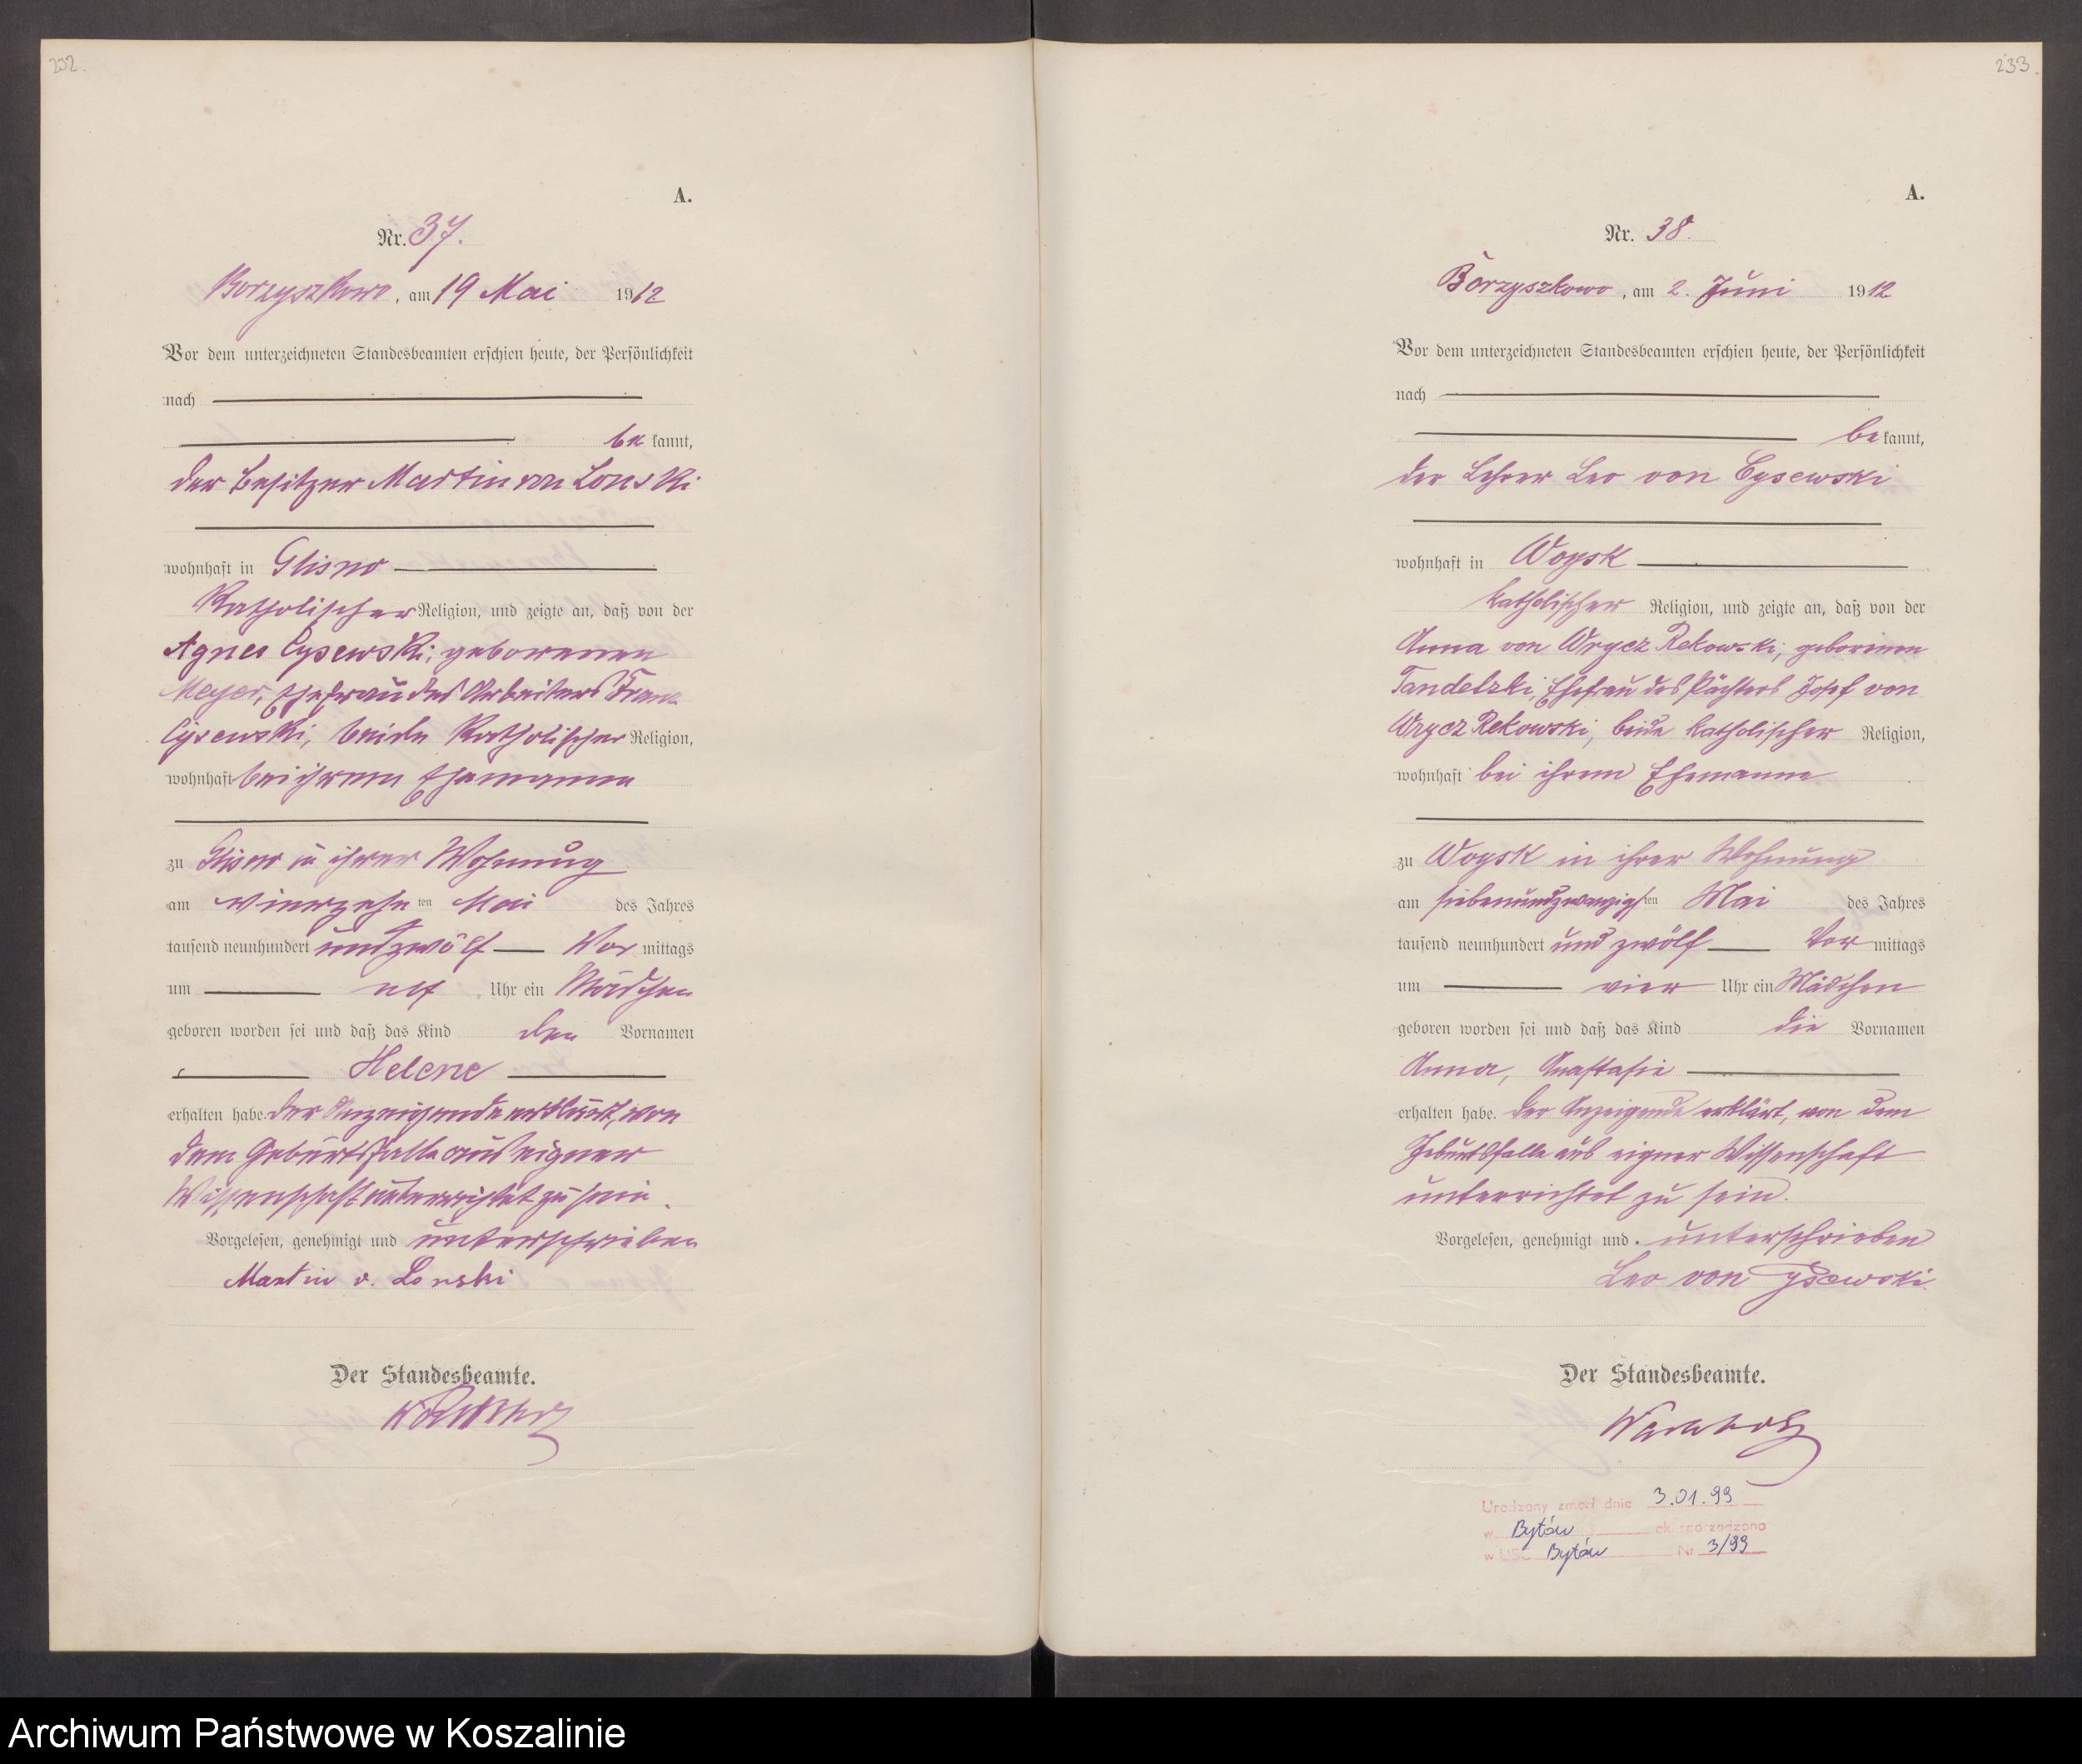 232.
A.
Nr. 37.
Borzyszkowo, am 19 Mai 1912
Vor dem unterzeichneten Standesbeamten erschien heute, der Persönlichkeit
nach
be kannt,
der Besitzer Martin von Lonski
wohnhaft in Glisno
Katholischer Religion, und zeigte an, daß von der
Agnes Cysewski, geborenen
Meyer, Ehefrau des Arbeiters Franz
Cysewski, beide Katholischer Religion,
wohnhaft bei ihrem Ehemanne
zu Glisno in ihrer Wohnung
am vierzehn ten Mai des Jahres
tausend neunhundert und zwölf Vor mittags
um elf Uhr ein Mädchen
geboren worden sei und daß das Kind den Vornamen
Helene
erhalten habe. Der Anzeigende erklärt, von
dem Geburtsfalle aus eigner
Wissenschaft unterrichtet zu sein.
Vorgelesen, genehmigt und unterschrieben
Martin v. Lonski
Der Standesbeamte.
233.
A.
Nr. 38.
Borzyszkowo, am 2. Juni 1912
Vor dem unterzeichneten Standesbeamten erschien heute, der Persönlichkeit
nach
be kannt,
der Lehrer Leo von Cysewski
wohnhaft in Woysk
katholischer Religion, und zeigte an, daß von der
Anna von Wrycz Rekowski, geborenen
Tandetzki, Ehefrau des Pächters Josef von
Wrycz Rekowski, beide katholischer Religion,
wohnhaft bei ihrem Ehemanne
zu Woysk in ihrer Wohnung
am siebenundzwanzigsten Mai des Jahres
tausend neunhundert und zwölf Vor mittags
um vier Uhr ein Mädchen
geboren worden sei und daß das Kind die Vornamen
Anna, Anastasie
erhalten habe. Der Anzeigende erklärt, von dem
Geburtsfalle aus eigner Wissenschaft
unterrichtet zu sein.
Vorgelesen, genehmigt und unterschrieben
Leo von Cysewski.
Der Standesbeamte.
Urodzony zmarł dnia 3.01.99
w Bytów akt sporządzono
w USC Bytów Nr 3/99
Archiwum Państwowe w Koszalinie